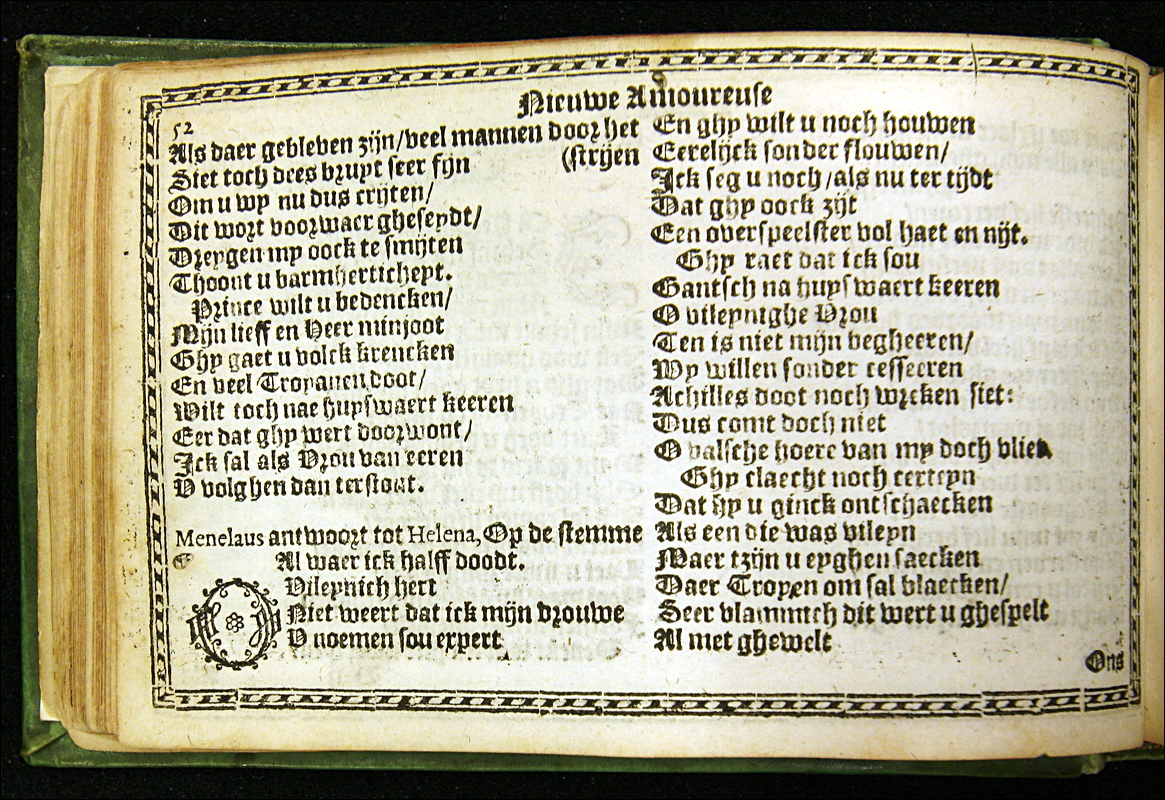 Nieuwe Amoureuse
52
Als daer gebleven zijn/veel mannen door het
(strijen
Siet toch dees bruyt seer fijn
Om u wy nu dus crijten/
Dit wort voorwaer gheseydt/
Dreygen my oock te smijten
Thoont u barmhertichept.
Prince wilt u bedencken/
Mijn lieff en Heer minjoot
Ghy gaet u volck krencken
En veel Troyanen doot/
Wilt toch nae huyswaert keeren
Eer dat ghy wert doorwont/
Ick sal als Vrou van eeren
V volghen dan terstont.
Menelaus antwoort tot Helena, Op de stemme
Al waer ick halff doodt.
O Vileynich hert
Niet weert dat ick mijn vrouwe
V noemen sou expert
En ghy wilt u noch houwen
Eerelijck sonder flouwen/
Ick seg u noch/als nu ter tijdt
Dat ghy oock zijt
Een overspeelster vol haet en nijt.
Ghy raet dat ick sou
Gantsch na huys waert keeren
O vileynighe Vrou
Ten is niet mijn begheeren/
Wy willen sonder cesseeren
Achilles doot noch wreken siet:
Dus comt doch niet
O valsche hoere van my doch vliet
Ghy claecht noch certeyn
Dat hy u ginck ontschaecken
Als een die was vileyn
Maer tzijn u eyghen saecken
Daer Troyen om sal blaecken/
Seer vlammich dit wert u ghespelt
Al met ghewelt
Ons